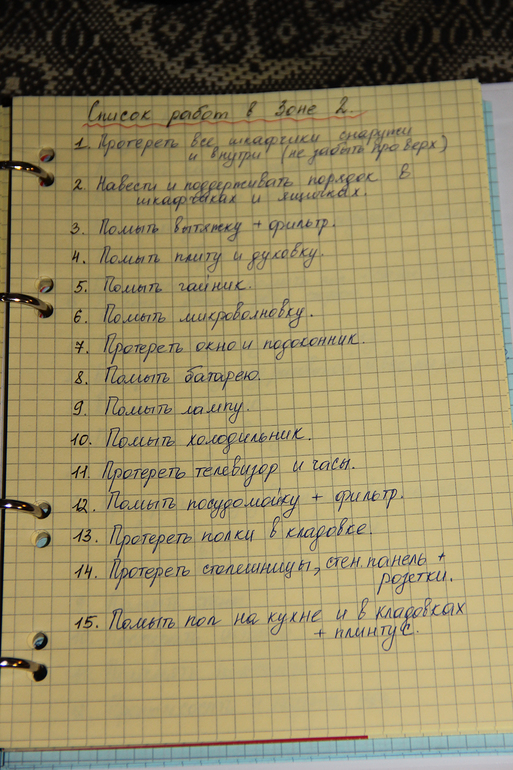 Список работ в Зоне 2.
1. Протереть все шкафчики снаружи
и внутри (не забыть про верх)
2. Навести и поддерживать порядок в
шкафчиках и ящичках.
3. Помыть вытяжку + фильтр.
4. Помыть плиту и духовку.
5. Помыть чайник.
6. Помыть микроволновку.
7. Протереть окно и подоконник.
8. Помыть батарею.
9. Помыть лампу.
10. Помыть холодильник.
11. Протереть телевизор и часы.
12. Помыть посудомойку + фильтр.
13. Протереть полки в кладовке.
14. Протереть столешницы, стен. панель +
розетки.
15. Помыть пол на кухне и в кладовках
+ плинтус.